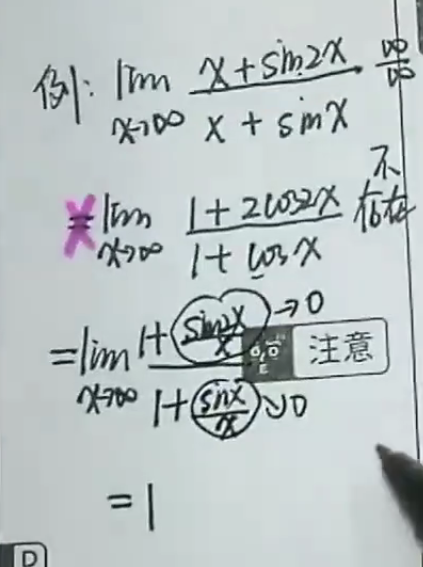 例: lim x→∞ (x + sin2x)/(x + sinx) ∞/∞
= lim x→∞ (1 + 2cos2x)/(1 + cosx) 不存在
= lim x→∞ (1 + sin2x/x)/(1 + sinx/x) →0 →0
注意
= 1
D